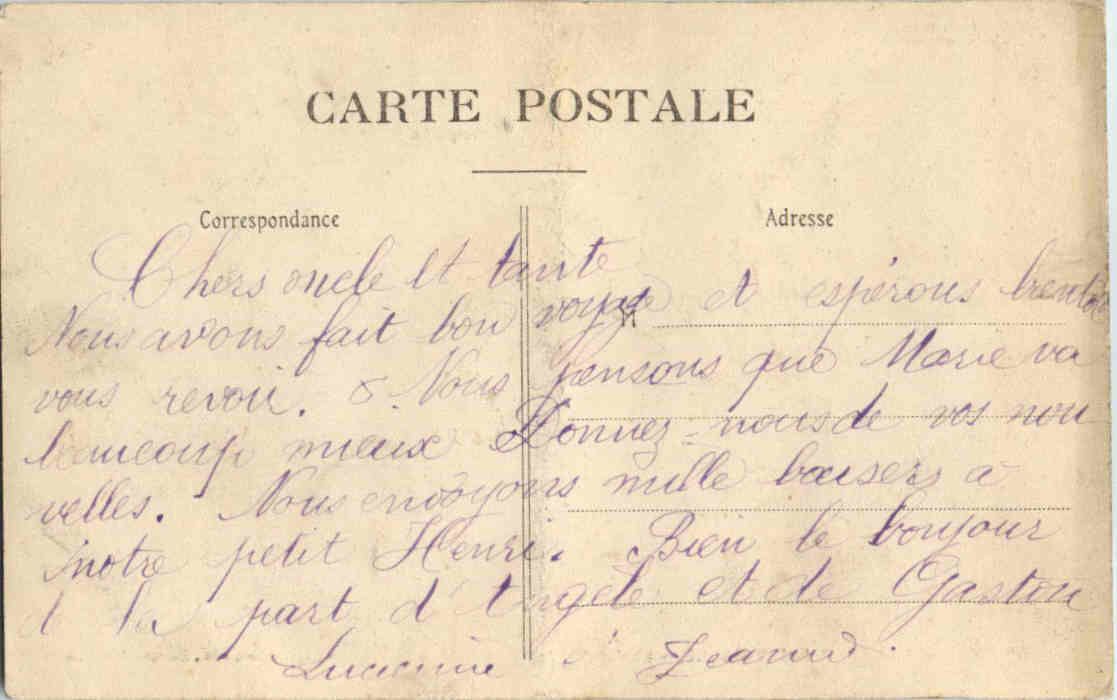 CARTE POSTALE
Correspondance
Adresse
Chers oncle et tante
Nous avons fait bon voyage et espérons bientôt
vous revoir. Nous pensons que Marie va
beaucoup mieux Donnez-nous de vos nou
velles. Nous envoyons mille baisers à
notre petit Henri. Bien le bonjour
d la part d'Angèle et de Gaston